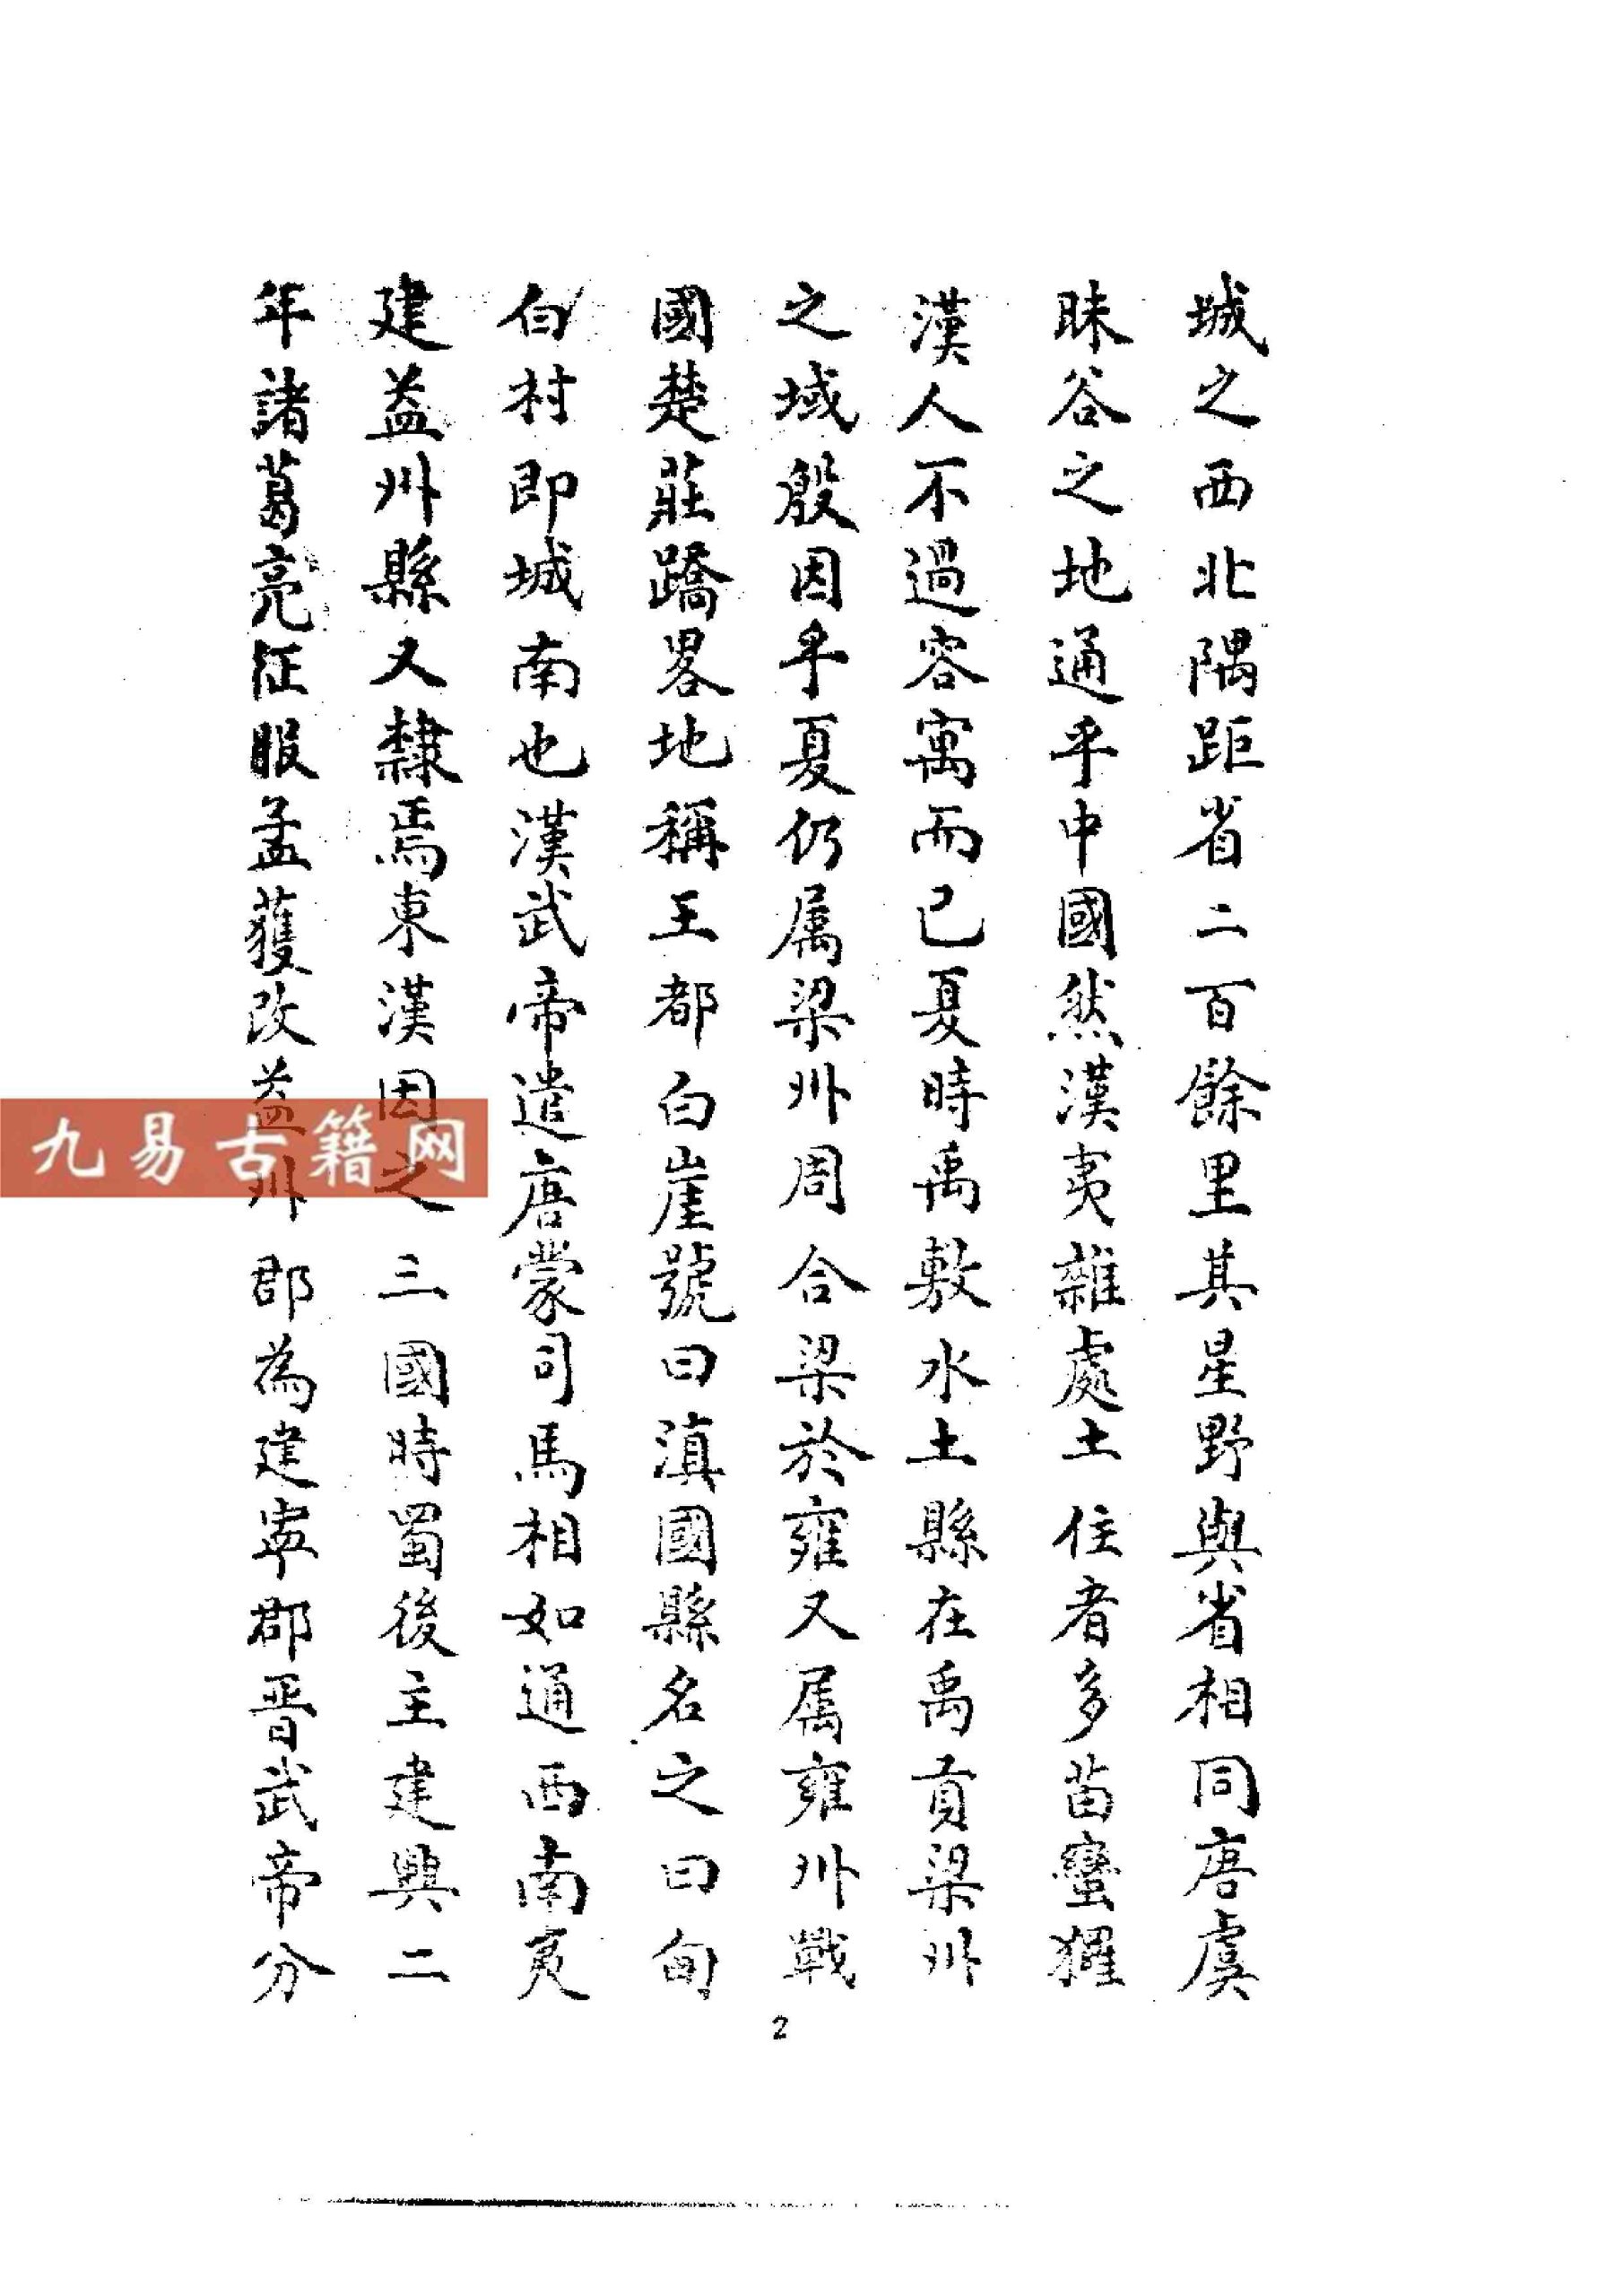 城之西北隅距省二百餘里其星野與省相同唐虞
昧谷之地通乎中國然漢夷雜處土住者多苗蠻玀
漢人不過客寓而已夏時禹敷水土縣在禹貢梁州
之域殷因乎夏仍属梁州周合梁於雍又属雍州戰
國楚莊蹻畧地稱王都白崖號曰滇國縣名之曰甸
白村即城南也漢武帝遣唐蒙司馬相如通西南夷
建益州縣又隸焉東漢因之三國時蜀後主建興二
年諸葛亮征服孟獲改益州郡為建寧郡晋武帝分
2
九易古籍网